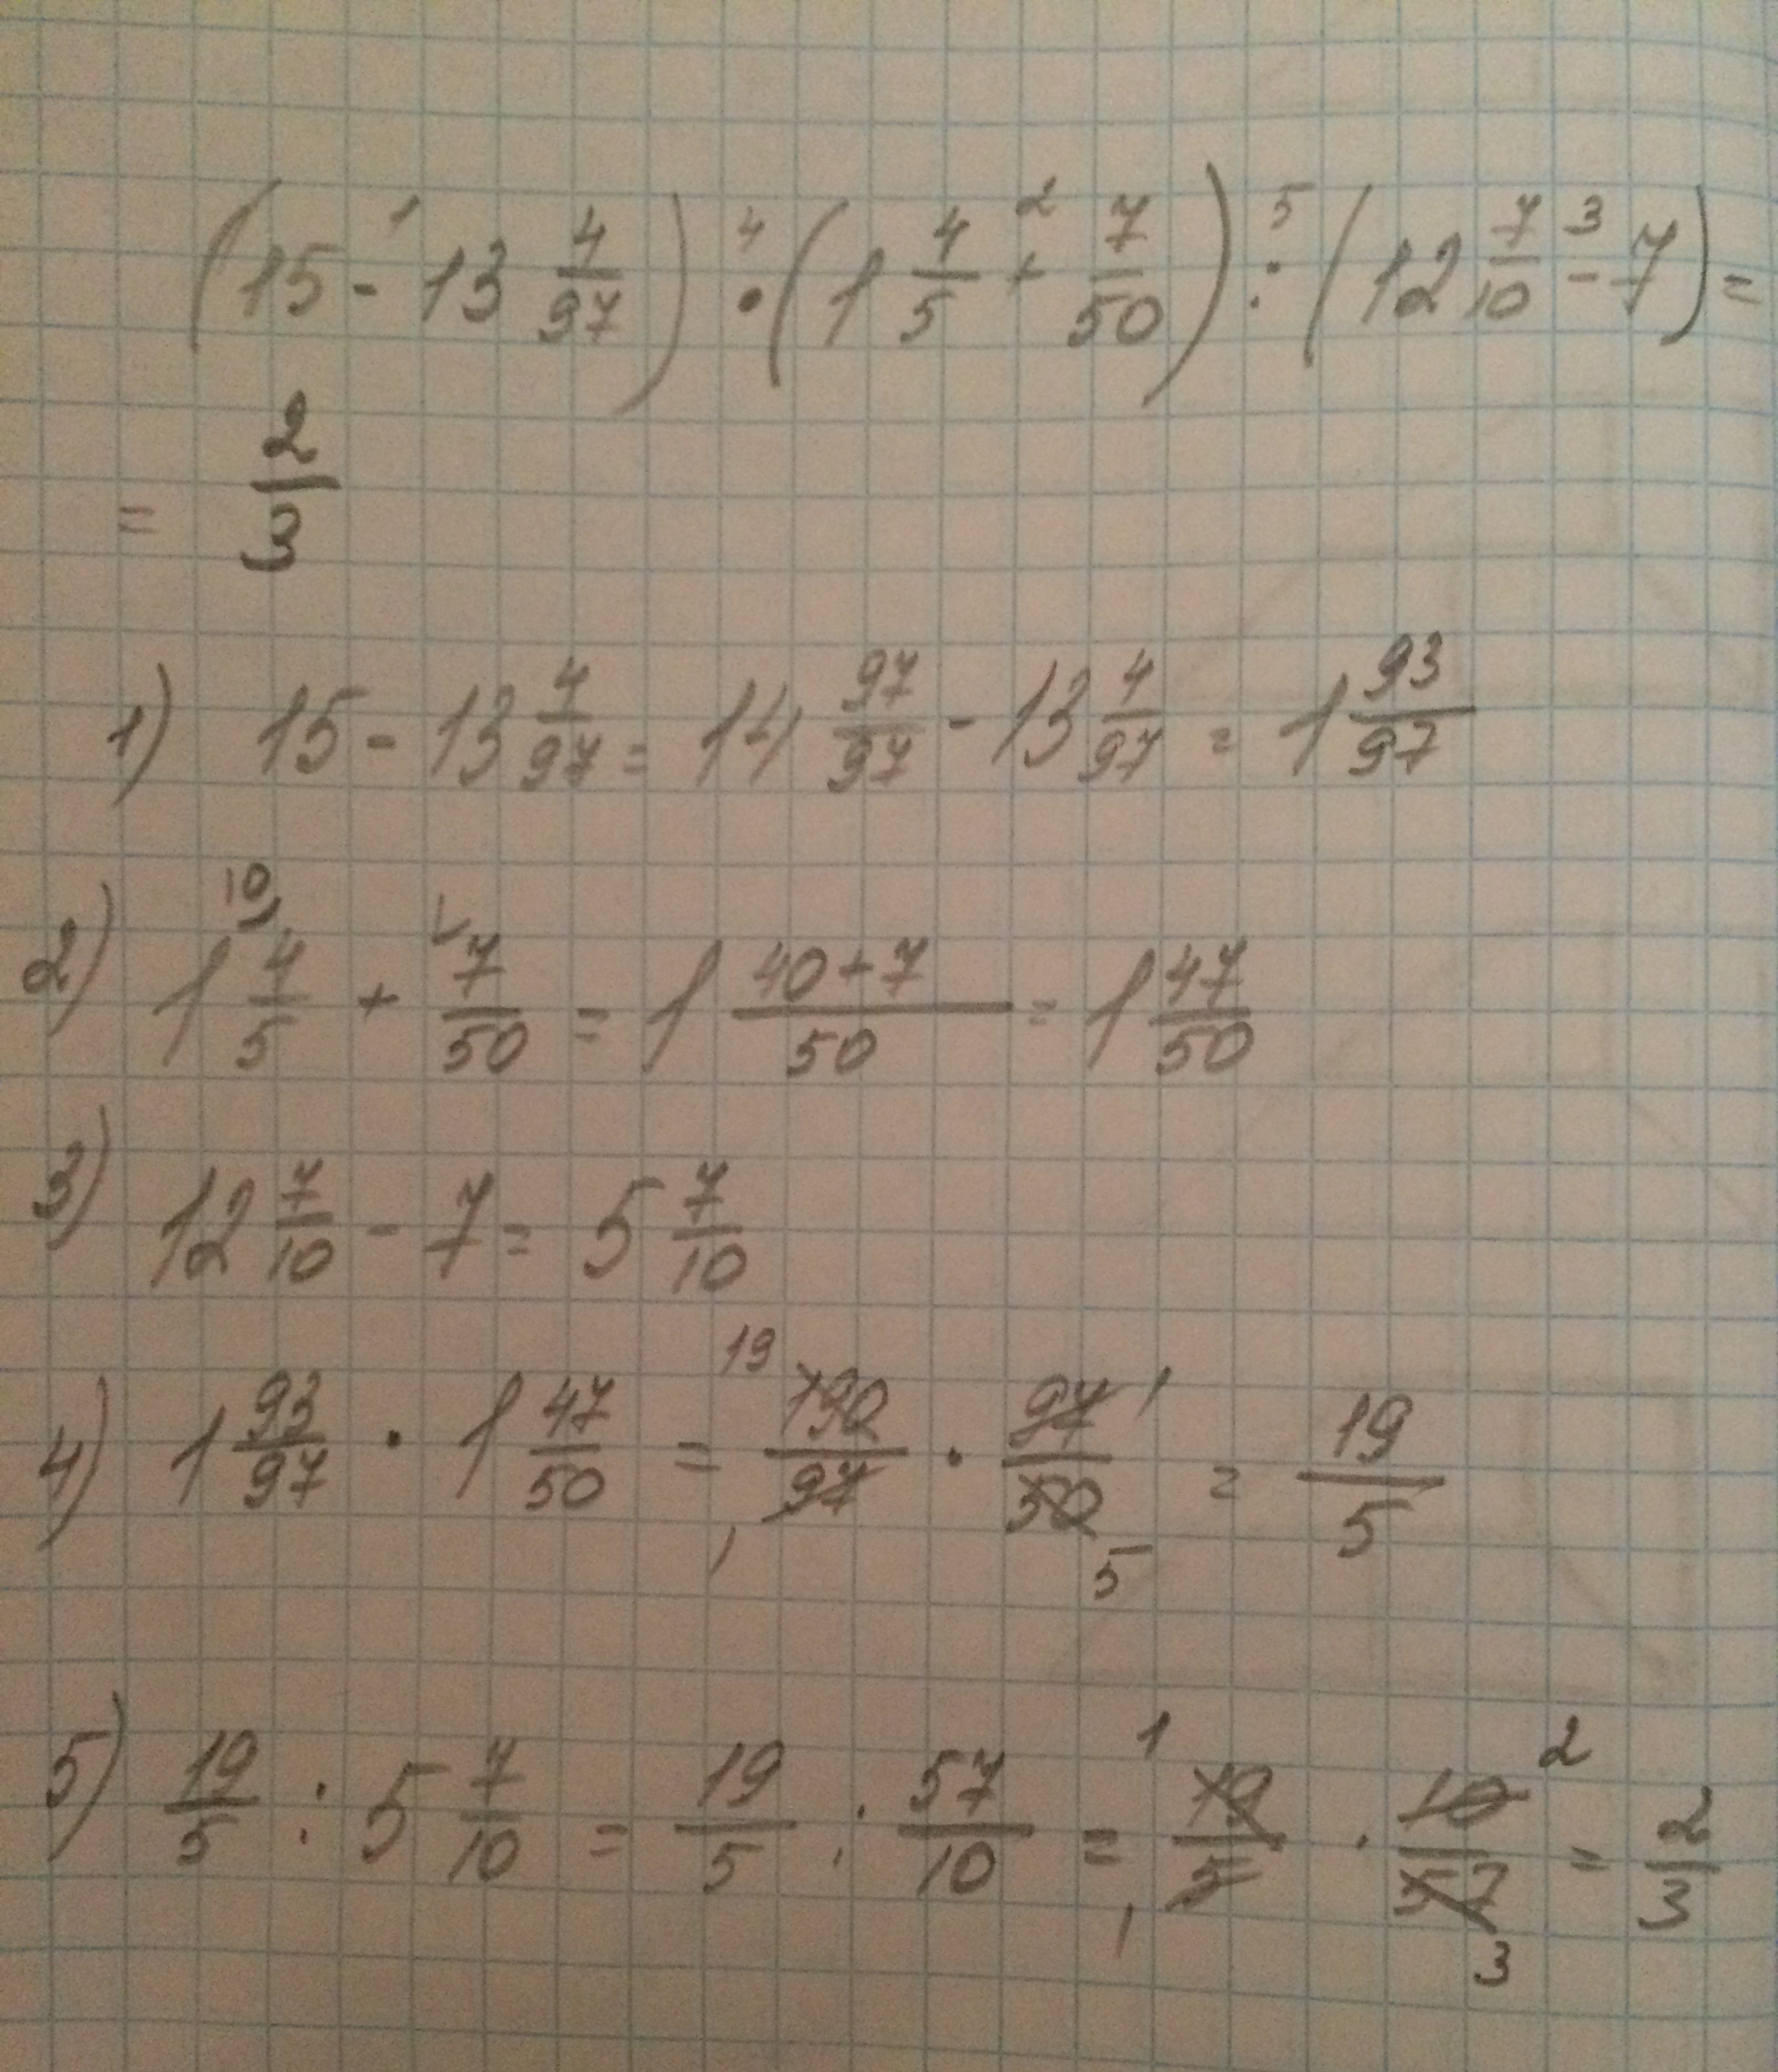 (15 - 13 4/97) · (1 4/5 + 7/50) : (12 7/10 - 7) =
= 2/3
1) 15 - 13 4/97 = 14 97/97 - 13 4/97 = 1 93/97
2) 1 4/5 + 7/50 = 1 (40+7)/50 = 1 47/50
3) 12 7/10 - 7 = 5 7/10
4) 1 93/97 · 1 47/50 = 190/97 · 97/50 = 19/5
5) 19/5 : 5 7/10 = 19/5 : 57/10 = 19/5 · 10/57 = 2/3